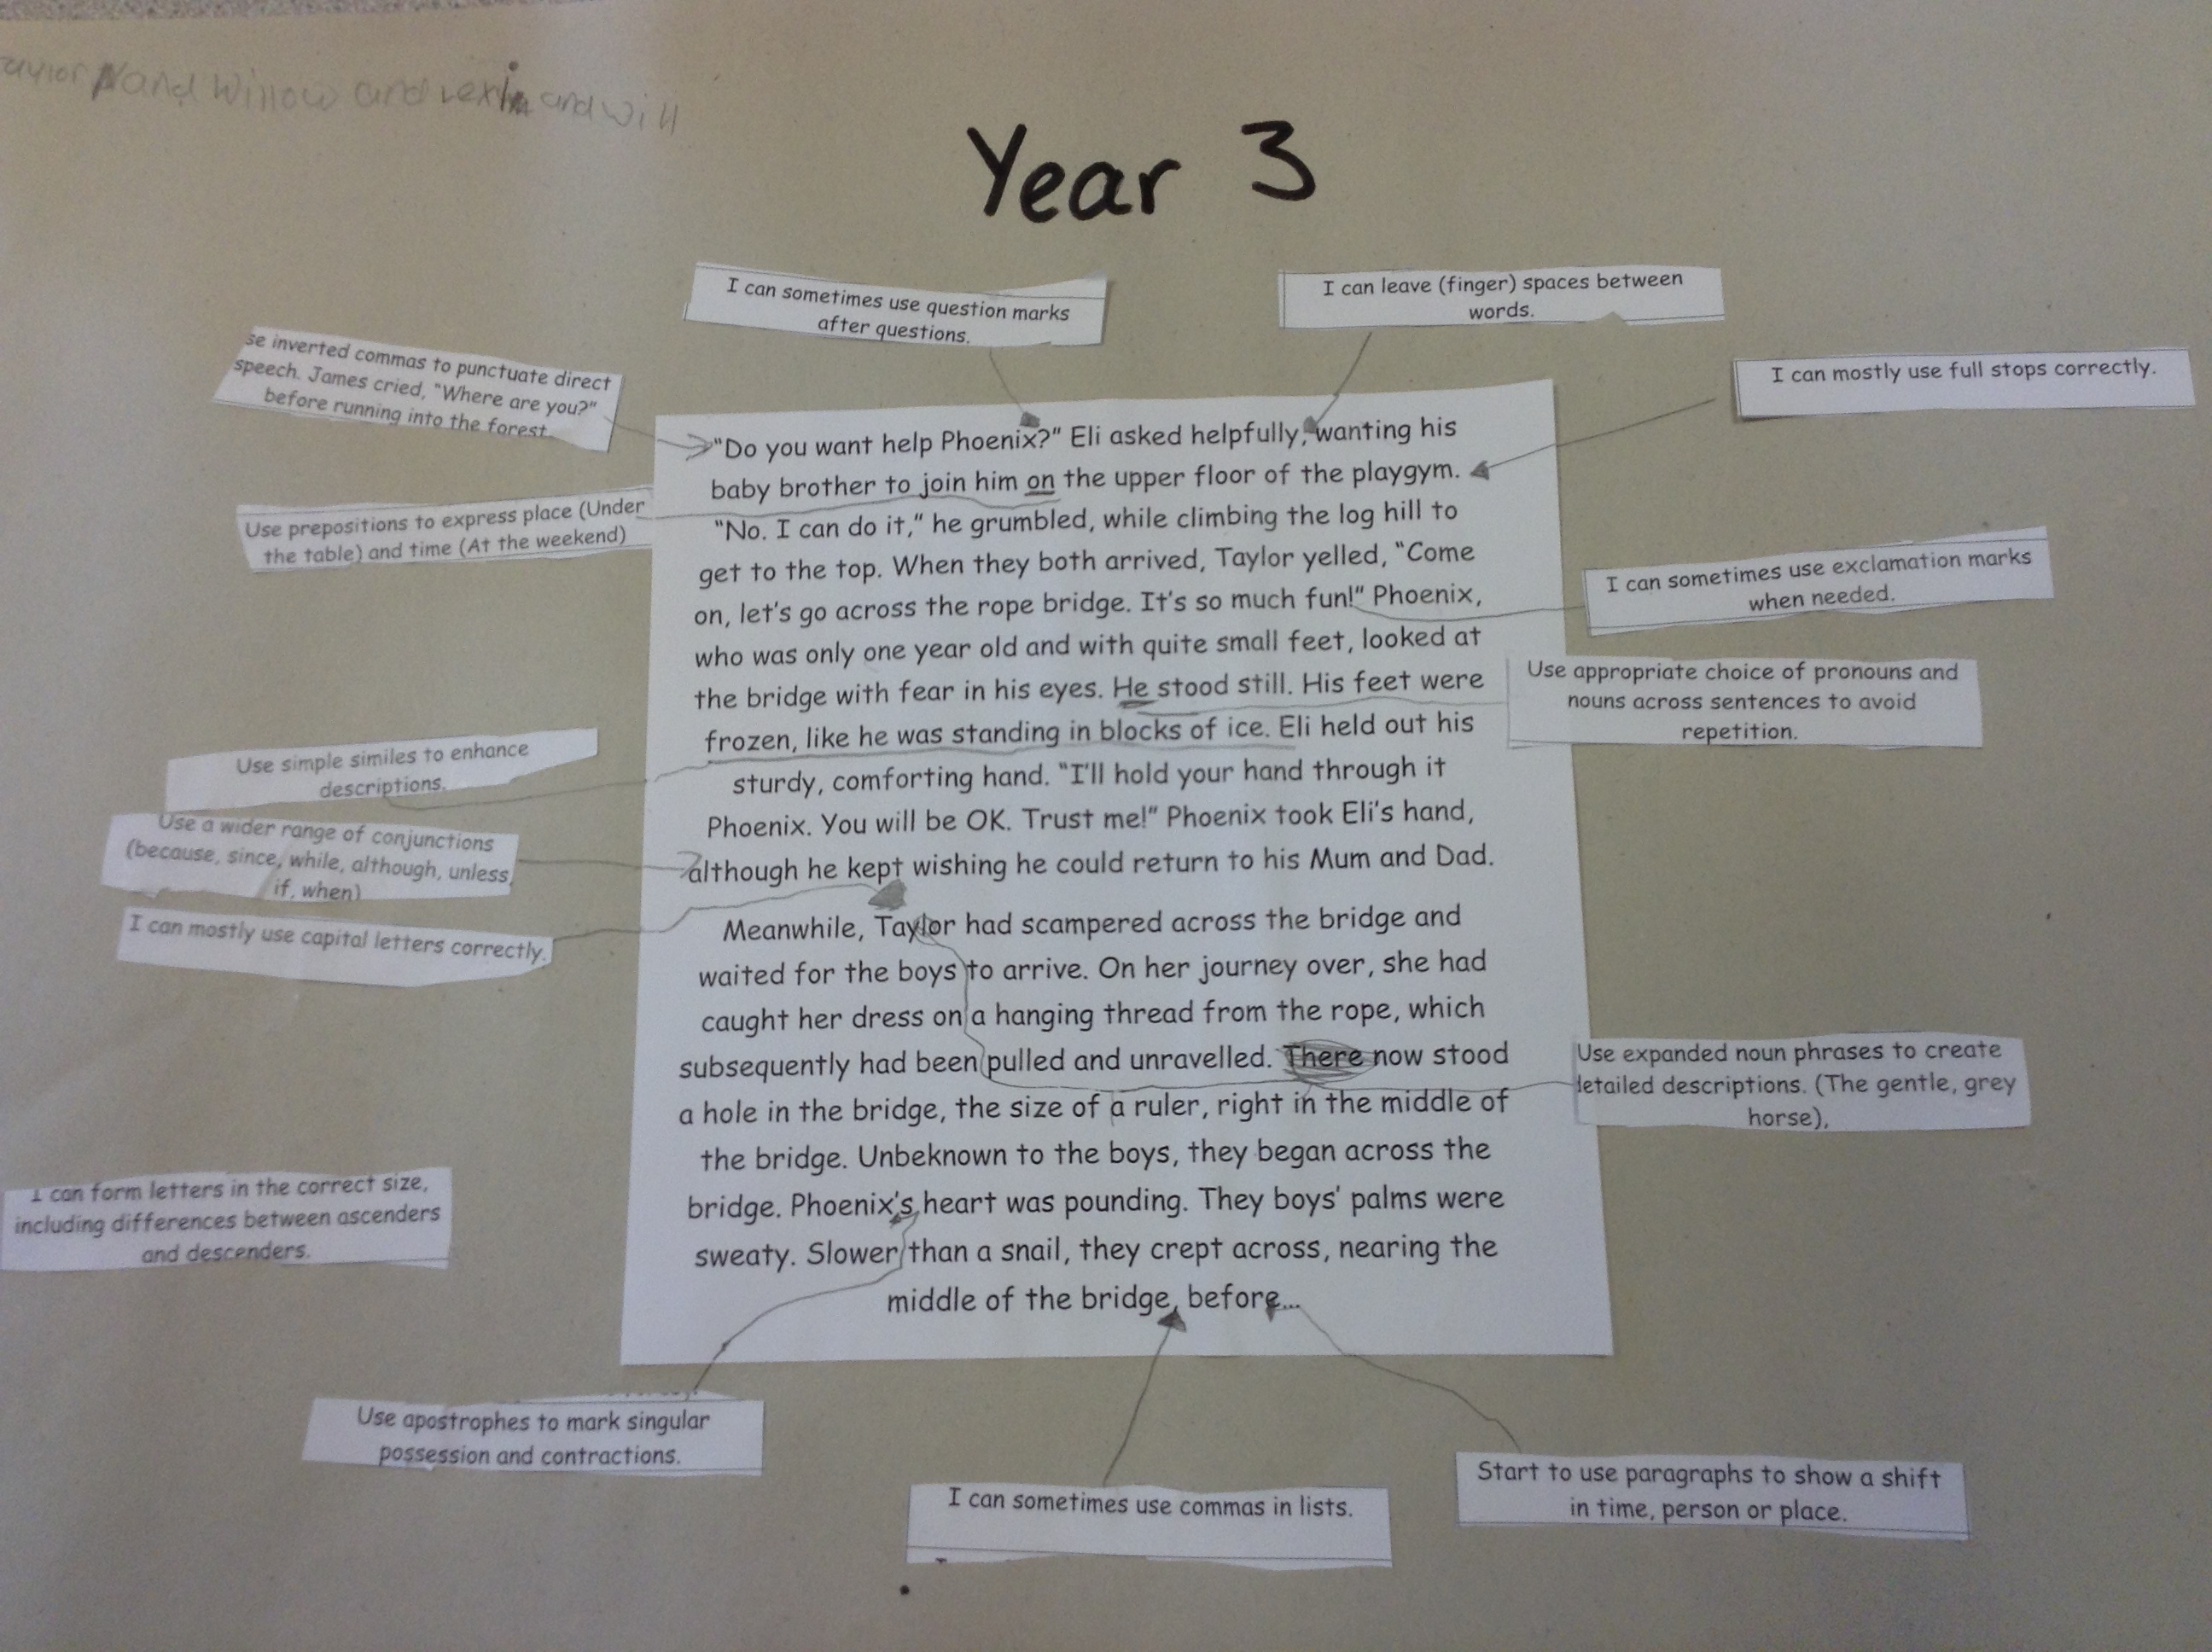 and Willow and and will
Year 3
I can sometimes use question marks
after questions.
I can leave (finger) spaces between
words.
se inverted commas to punctuate direct
speech. James cried, "Where are you?"
before running into the forest.
I can mostly use full stops correctly.
Use prepositions to express place (Under
the table) and time (At the weekend)
I can sometimes use exclamation marks
when needed.
Use appropriate choice of pronouns and
nouns across sentences to avoid
repetition.
Use simple similes to enhance
descriptions.
Use a wider range of conjunctions
(because, since, while, although, unless,
if, when)
I can mostly use capital letters correctly.
"Do you want help Phoenix?" Eli asked helpfully, wanting his
baby brother to join him on the upper floor of the playgym.
"No. I can do it," he grumbled, while climbing the log hill to
get to the top. When they both arrived, Taylor yelled, "Come
on, let's go across the rope bridge. It's so much fun!" Phoenix,
who was only one year old and with quite small feet, looked at
the bridge with fear in his eyes. He stood still. His feet were
frozen, like he was standing in blocks of ice. Eli held out his
sturdy, comforting hand. "I'll hold your hand through it
Phoenix. You will be OK. Trust me!" Phoenix took Eli's hand,
although he kept wishing he could return to his Mum and Dad.
Meanwhile, Taylor had scampered across the bridge and
waited for the boys to arrive. On her journey over, she had
caught her dress on a hanging thread from the rope, which
subsequently had been pulled and unravelled. There now stood
a hole in the bridge, the size of a ruler, right in the middle of
the bridge. Unbeknown to the boys, they began across the
bridge. Phoenix's heart was pounding. They boys' palms were
sweaty. Slower than a snail, they crept across, nearing the
middle of the bridge, before...
Use expanded noun phrases to create
detailed descriptions. (The gentle, grey
horse),
I can form letters in the correct size,
including differences between ascenders
and descenders.
Use apostrophes to mark singular
possession and contractions.
I can sometimes use commas in lists.
Start to use paragraphs to show a shift
in time, person or place.